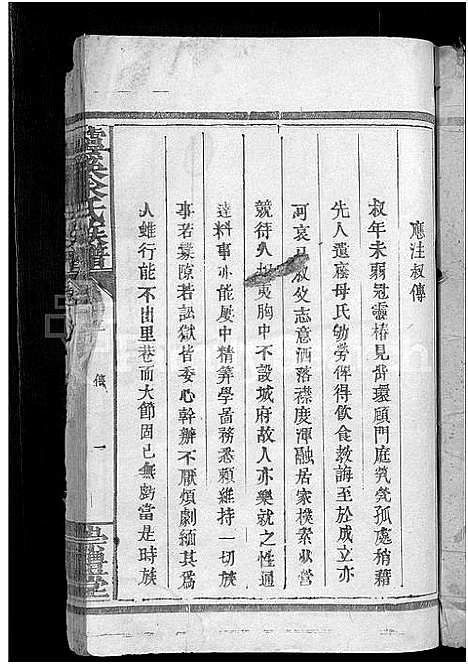 應注叔傳
叔年未弱冠靈椿見背環顧門庭煢煢孤處稍藉
先人遺蔭母氏劬勞俾得飲食教誨至於成立亦
可哀已叔志意洒落襟度渾融居家樸素不營
競待人坦夷胸中不設城府故人亦樂就之性通
達料事亦能屢中精筭學啚務悉賴維持一切族
事若棠隙若訟獄皆委心幹辦不厭煩劇緬其為
人雖行能不出里巷而大節固已無虧當是時族
氏族譜
傳
一
堂